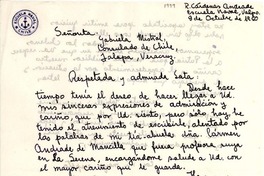 R. Cárdenas Andrade
Escuela Naval, Valpo
9 de Octubre de
Señorita
Gabriela Mistral
Consulado de Chile,
Jalapa, Veracruz.
Respetada y admirada Srta:
Desde hace
tiempo tenía el deseo de hacer llegar a Ud.
mis sinceras expresiones de admiración y
cariño, que por Ud. siento, pero sólo hoy he
tenido el atrevimiento de escribirle, alentado por
las palabras de mi tía-abuela dña. Carmen
Andrade de Mancilla que fuera profesora suya
en La Serena, encargándome salude a Ud. con
el mayor cariño que le guarda.